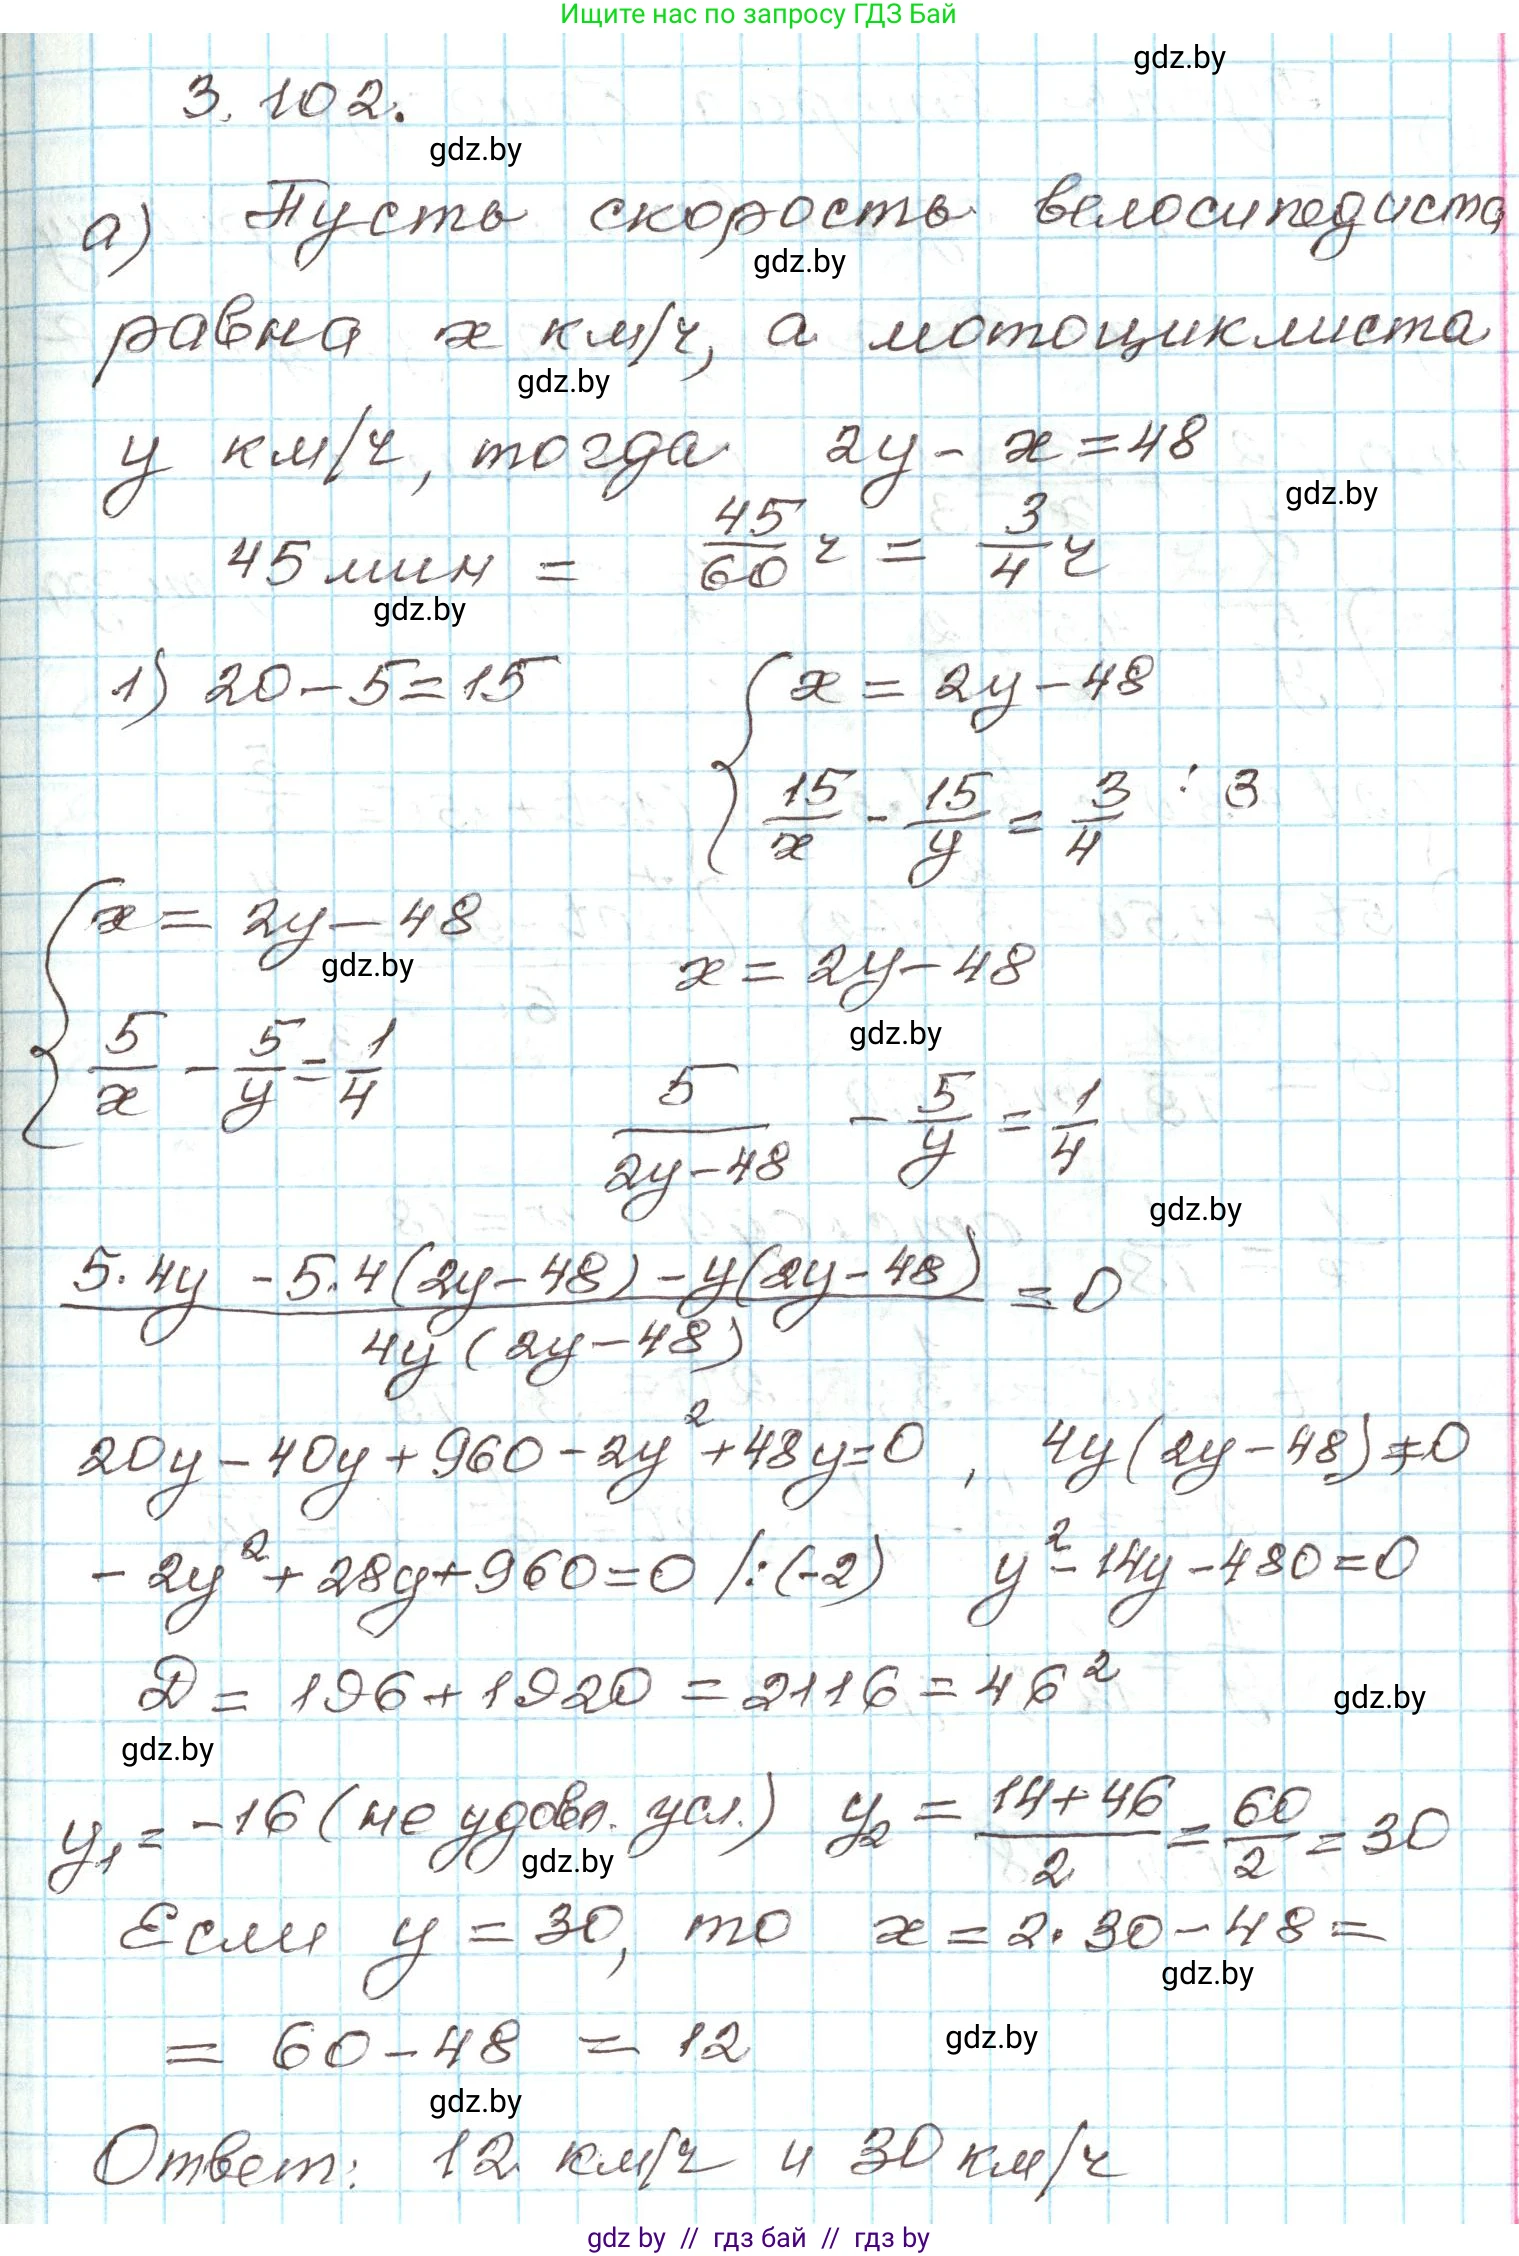 Ищите нас по запросу ГДЗ Бай
gdz.by
3.102.
gdz.by
а) Пусть скорость велосипедиста
gdz.by
равна x км/ч, а мотоциклиста
gdz.by
y км/ч, тогда 2y - x = 48
gdz.by
45 мин = 45/60 ч = 3/4 ч
gdz.by
1) 20 - 5 = 15 { x = 2y - 48
15/x - 15/y = 3/4 : 3
{ x = 2y - 48
gdz.by
x = 2y - 48
gdz.by
5/x - 5/y = 1/4
5/(2y - 48) - 5/y = 1/4
gdz.by
(5·4y - 5·4(2y - 48) - y(2y - 48))/(4y(2y - 48)) = 0
20y - 40y + 960 - 2y² + 48y = 0, 4y(2y - 48) ≠ 0
- 2y² + 28y + 960 = 0 /:(-2) y² - 14y - 480 = 0
D = 196 + 1920 = 2116 = 46²
gdz.by
gdz.by
y₁ = -16 (не удовл. усл.) y₂ = (14 + 46)/2 = 60/2 = 30
gdz.by
Если y = 30, то x = 2·30 - 48 =
gdz.by
= 60 - 48 = 12
gdz.by
gdz.by
Ответ: 12 км/ч и 30 км/ч
gdz by // гдз бай // гдз by